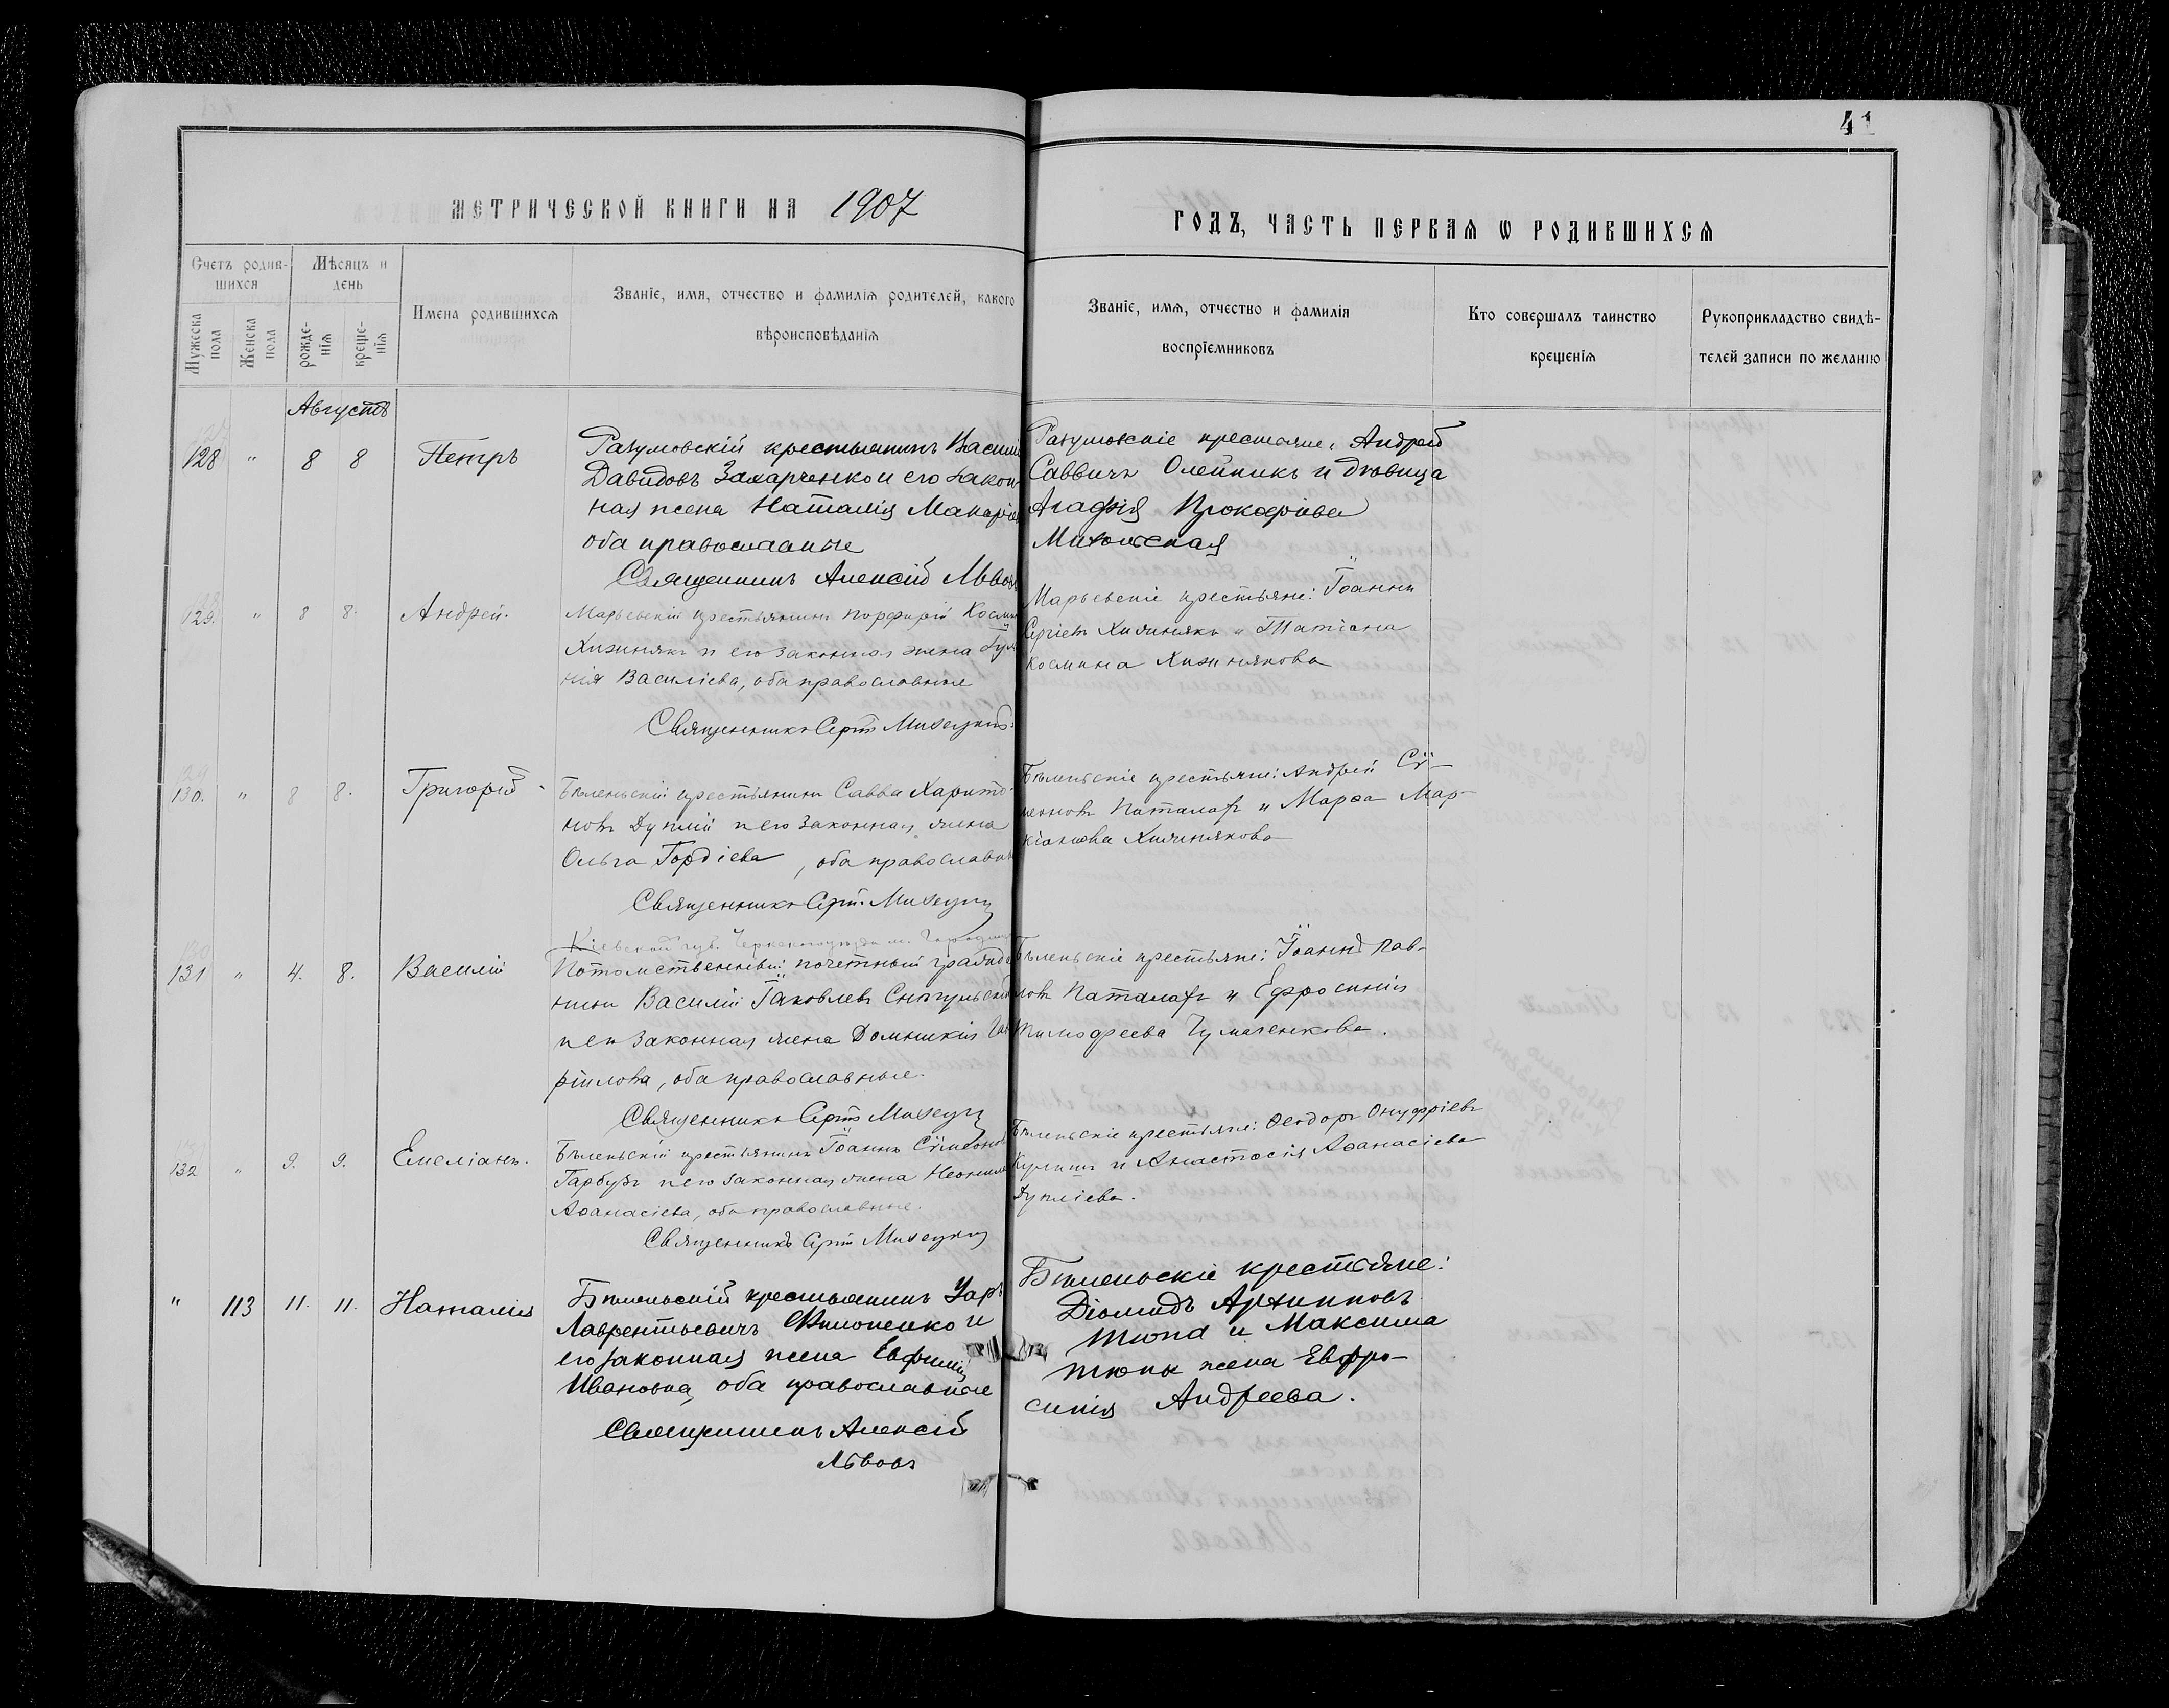 41
МЕТРИЧЕСКОЙ КНИГИ НА 1907
ГОДЪ, ЧАСТЬ ПЕРВАЯ Ѡ РОДИВШИХСЯ
Счетъ родив-
шихся
Мѣсяцъ и
день
Мужеска
пола
Женска
пола
рожде-
нія
креще-
нія
Имена родившихся
Званіе, имя, отчество и фамилія родителей, какого
вѣроисповѣданія
Званіе, имя, отчество и фамилія
воспріемниковъ
Кто совершалъ таинство
крещенія
Рукоприкладство свидѣ-
телей записи по желанію
Августъ
128 " 8 8 Петръ
Разумовскій крестьянинъ Васили
Давидовъ Захарченко и его закон
ная жена Наталія Макаріе
оба православные
Священникъ Алексій Львовъ
Разумовскіе крестьяне: Андрей
Саввичъ Олейникъ и дѣвица
Агафія Прокофіева
129. " 8 8. Андрей.
Марьевскій крестьянинъ Порфирій Косми
Хижнякъ и его законная жена
нія Василіева, оба православные
Священникъ Серг. Михецкій
Марьевскіе крестьяне: Іоаннъ
Сергіевъ Хижнякъ и Татіана
Космина Хижнякова
130. " 8 8. Григорій
Бѣленьскій крестьянинъ Савва Харито-
новъ Дуплій и его законная жена
Ольга Гордіева, оба православны
Священникъ Серг. Михецкій
Бѣленьскіе крестьяне: Андрей Сѵ-
меоновъ Паталахъ и Марѳа Мар-
кіанова Хижнякова
131 " 4. 8. Василій
Кіевской губ. Черкасскаго уѣзда м.
Потомственный почетный гражда
нинъ Василій Іаковлевъ
и его законная жена Домникія Гав
ріилова, оба православные.
Священникъ Серг. Михецкій
Бѣленьскіе крестьяне: Іоаннъ Пав-
ловъ Паталахъ и Ефросинія
Тимоѳеева Чумаченкова.
132 " 9. 9. Емеліанъ.
Бѣленьскій крестьянинъ Іоаннъ Сѵмеонов
Гарбузъ и его законная жена Неонила
Аѳанасіева, оба православные.
Священникъ Серг. Михецкій
Бѣленьскіе крестьяне: Ѳеодоръ Онуфріевъ
и Анастасія Аѳанасіева
Дупліева.
" 113 11. 11. Наталія
Бѣленьскій крестьянинъ
Лаврентьевичъ Филоненко и
его законная жена Евфимія
Ивановна, оба православные
Священникъ Алексій
Львовъ
Бѣленьскіе крестьяне:
Діомидъ Архиповъ
Тюпа и Максима
Тюпы жена Евфро-
синія Андреева.